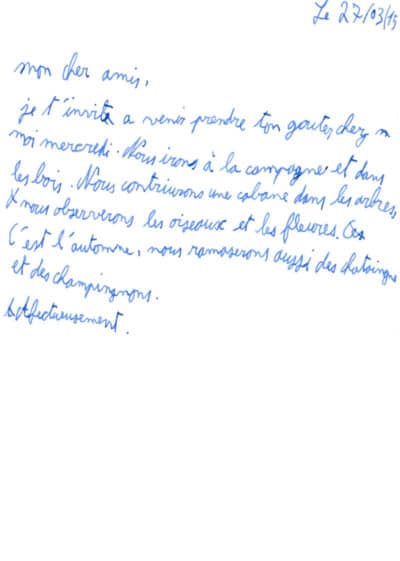 Le 27/03/15
mon cher amis,
je t'invite a venir prendre ton gouter, chez m
moi mercredi. Nous irons à la campagne et dans
les bois. Nous contriurons une cabane dans les arbres,
X nous observerons les oiseaux et les fleures. Ces
C'est l'automne, nous ramaserons aussi des chatoingue
et des champingnons.
Afectueusement.